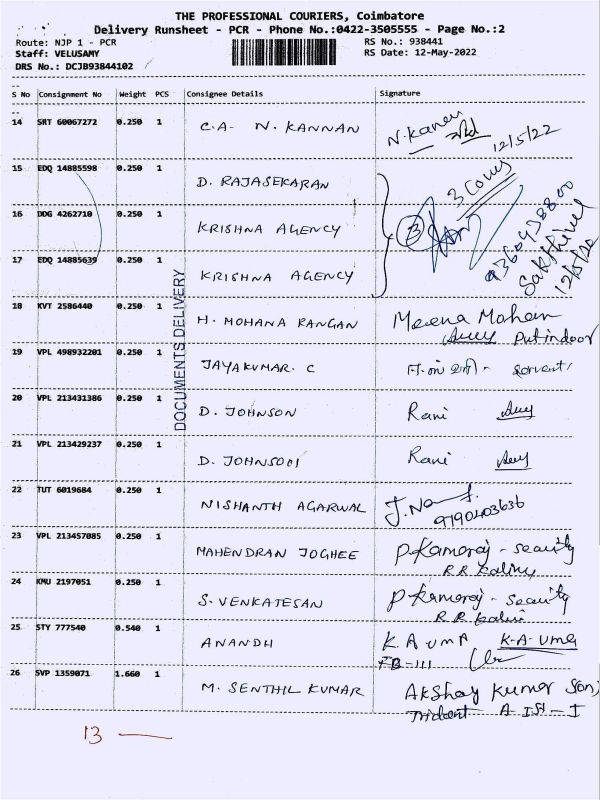 THE PROFESSIONAL COURIERS, Coimbatore
Delivery Runsheet - PCR - Phone No.:0422-3505555 - Page No.:2
Route: NJP 1 - PCR RS No.: 938441
Staff: VELUSAMY RS Date: 12-May-2022
DRS No.: DCJB93844102
S No Consignment No Weight PCS Consignee Details Signature
14 SRT 60067272 0.250 1 C.A- N. KANNAN N.Kanan 12/5/22
15 EDQ 14885598 0.250 1 D. RAJASEKARAN 3 Covers
16 DDG 4262710 0.250 1 KRISHNA AGENCY 3 9360938800
17 EDQ 14885639 0.250 1 KRISHNA AGENCY Sakthivel 12/5/20
DOCUMENTS DELIVERY
18 KVT 2586440 0.250 1 H. MOHANA RANGAN Meena Mohan
Put indoor
19 VPL 498932201 0.250 1 JAYAKUMAR. C Servent
20 VPL 213431386 0.250 1 D. JOHNSON Rani
21 VPL 213429237 0.250 1 D. JOHNSON Rani
22 TUT 6019684 0.250 1 NISHANTH AGARWAL
23 VPL 213457085 0.250 1 MAHENDRAN JOGHEE P.Kamaraj - Security
24 KMU 2197051 0.250 1 S. VENKATESAN P.Kamaraj - Security
25 STY 777540 0.540 1 ANANDH K.A UMA K-A-Uma
FB-111
26 SVP 1359071 1.660 1 M. SENTHIL KUMAR Akshay Kumar Son
Trident A
13